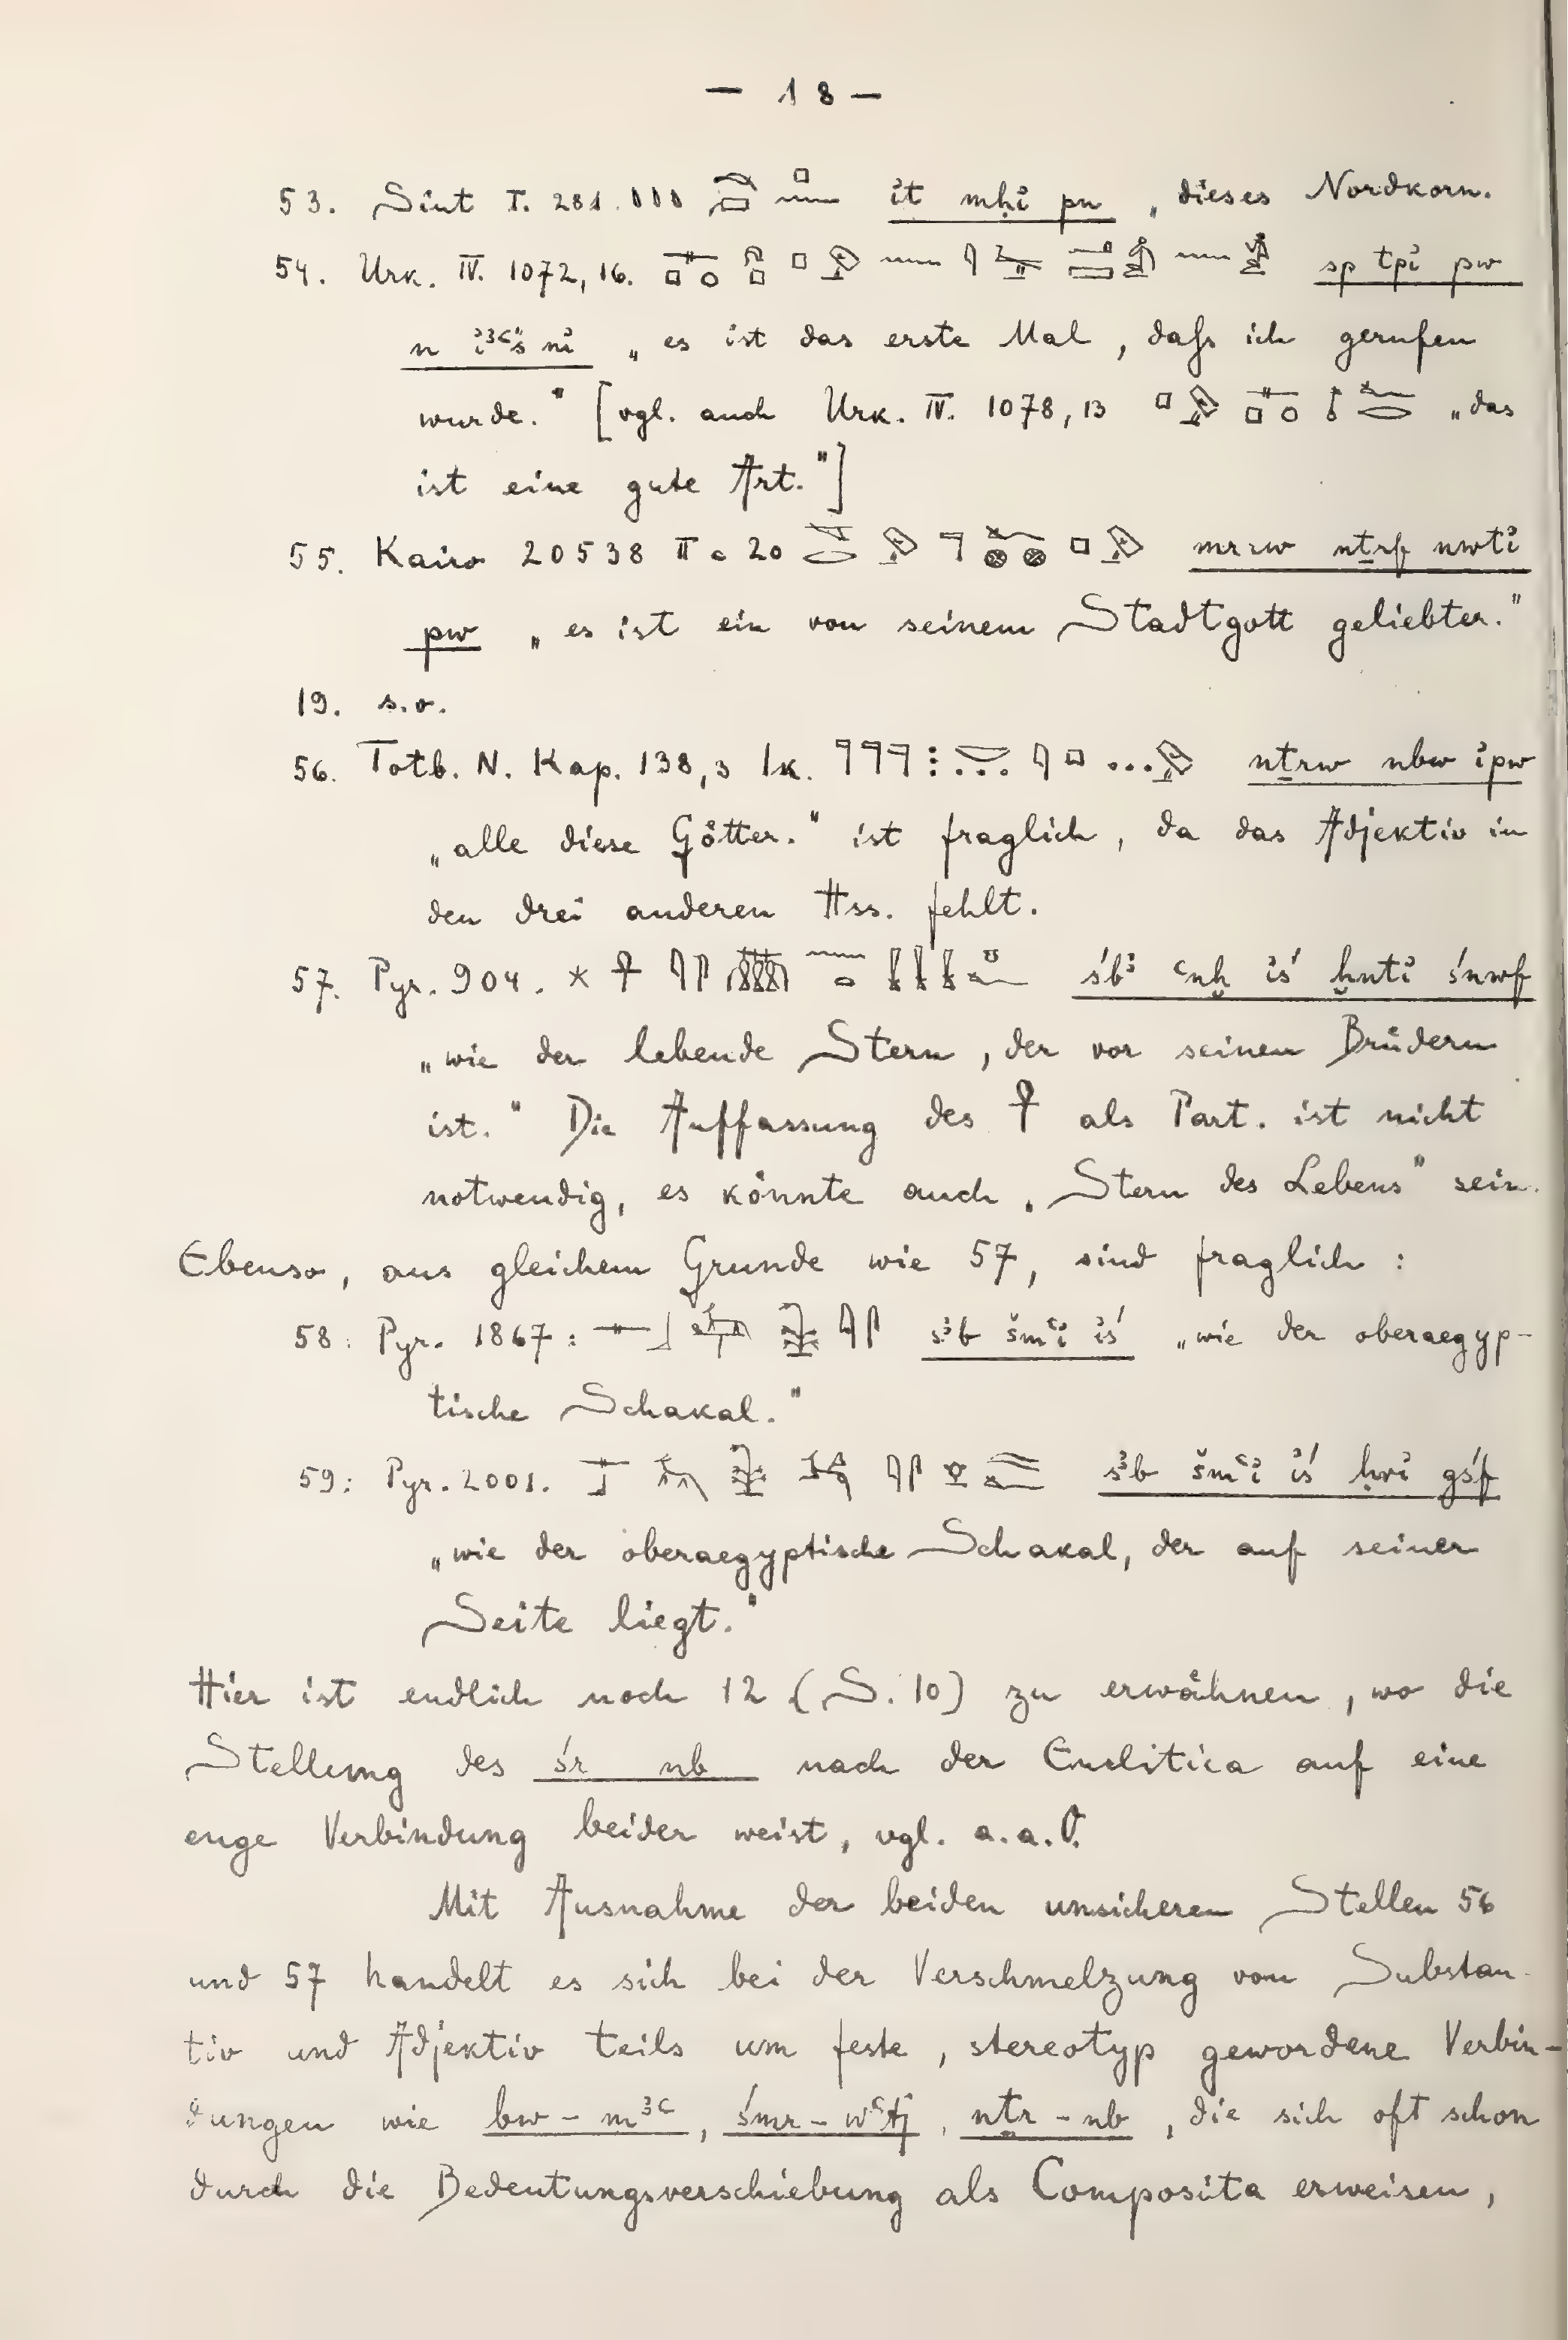 — 18 —
53. Siut I. 281. it mḥi pn „dieses Nordkorn.
54. Urk. IV. 1072, 16. sp tpi pw
n i3ꜥš ni „es ist das erste Mal, daſs ich gerufen
wurde." [vgl. auch Urk. IV. 1078, 13 „das
ist eine gute Art."]
55. Kairo 20538 II c 20 mrrw nṯrf nwti
pw „es ist ein von seinem Stadtgott geliebter."
19. s.o.
56. Totb. N. Kap. 138,3 nṯrw nbw ipw
„alle diese Götter." ist fraglich, da das Adjektiv in
den drei anderen Hss. fehlt.
57. Pyr. 904. 𓋹 śb3 ꜥnḫ iś ḫnti śnwf
„wie der lebende Stern, der vor seinen Brüdern
ist." Die Auffassung des 𓋹 als Part. ist nicht
notwendig, es könnte auch „Stern des Lebens" sein.
Ebenso, aus gleichem Grunde wie 57, sind fraglich:
58: Pyr. 1867: s3b šmꜥi iś „wie der oberaegyp-
tische Schakal."
59: Pyr. 2001. s3b šmꜥi iś ḥri gśf
„wie der oberaegyptische Schakal, der auf seiner
Seite liegt."
Hier ist endlich noch 12 (S. 10) zu erwähnen, wo die
Stellung des śr nb nach der Enclitica auf eine
enge Verbindung beider weist, vgl. a.a.O.
Mit Ausnahme der beiden unsicheren Stellen 56
und 57 handelt es sich bei der Verschmelzung von Substan-
tiv und Adjektiv teils um feste, stereotyp gewordene Verbin-
dungen wie bw-m3ꜥ, śmr-wꜥtj, nṯr-nb, die sich oft schon
durch die Bedeutungsverschiebung als Composita erweisen,